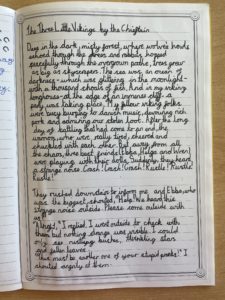 The Three Little Vikings by the Chieftain
Deep in the dark, misty forest, where wolves howls
echoed through the trees and rabbits hopped
peacefully through the overgrown paths, trees grew
as big as skyscrapers. The sea was an ocean of
darkness - which was glittering in the moonlight -
with a thousand shoals of fish. And in my viking
longhouse at the edge of an immense cliff a
party was taking place. My fellow viking folks
were busy to danish music, devouring rich
pork and admiring our stolen loot. After the long
day of battling that had come to an end the
women, who were really tired, cheered and
chuckled with each other. But away from all
the chaos, three best friends (Ebbe, Helga and
were playing with their dolls. Suddenly, they heard
a strange noise. Crash! Crash! Crash! Rustle! Rustle!
Rustle!
They rushed downstairs to inform me and Ebbe, who
was the biggest, shouted, "Help! We heard this
strange noise outside. Please come outside with
us.
"Alright," I replied. I went outside to check with
them but nothing strange was visible. I could
only see rustling bushes, twinkling stars
and fallen leaves.
"This must be another one of your stupid pranks!" I
shouted angrily at them.